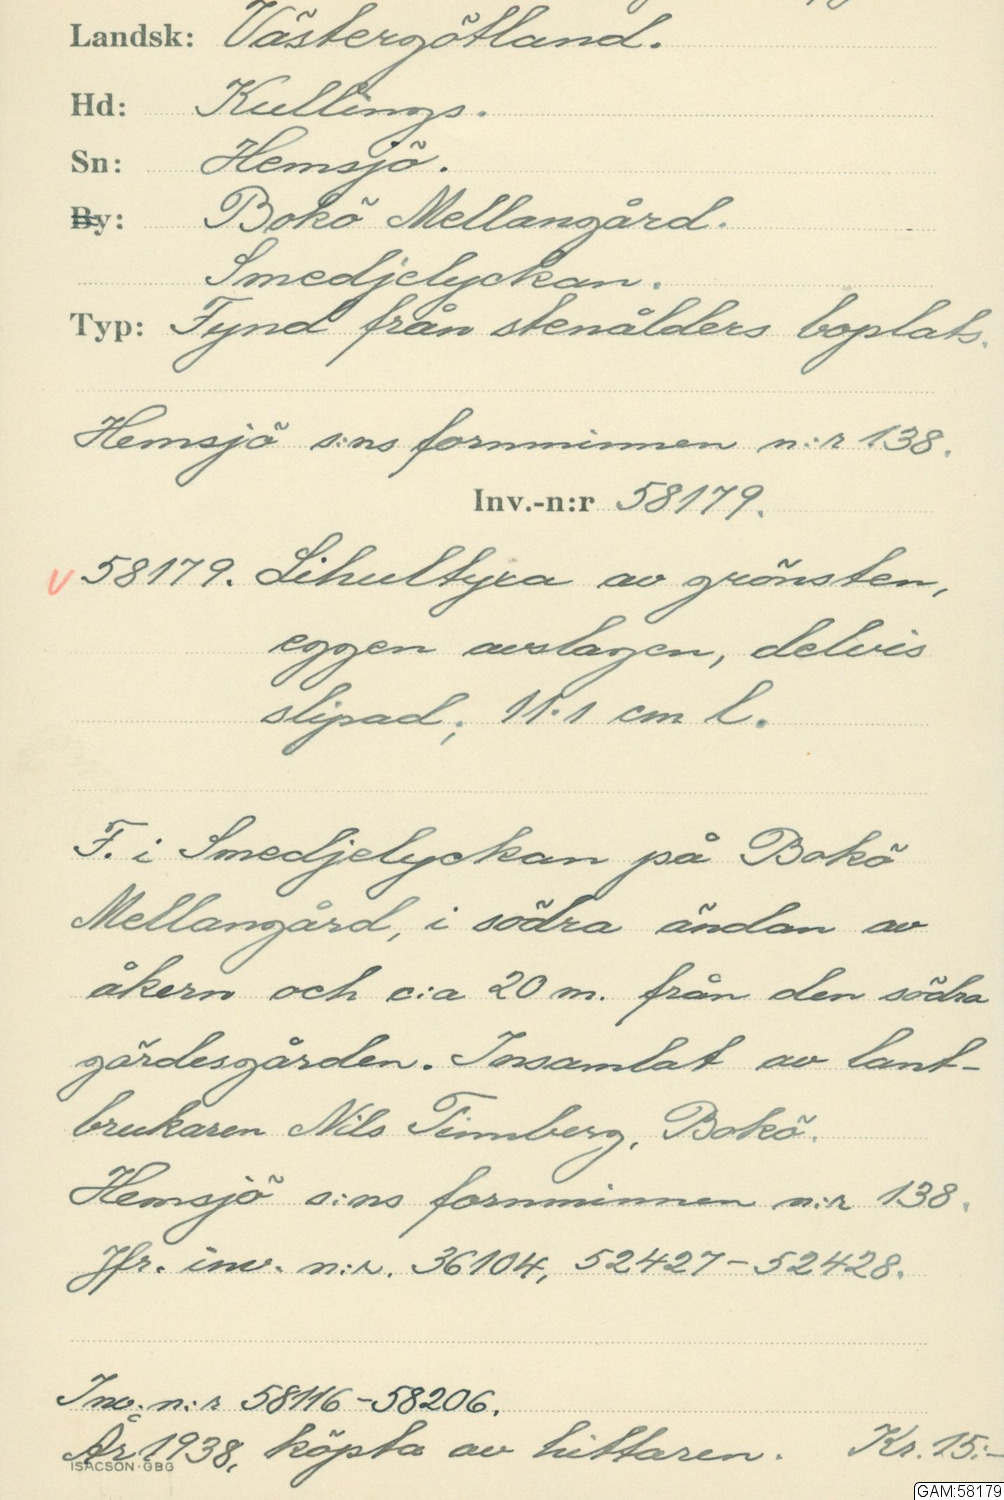 Landsk: Västergötland.
Hd: Kullings.
Sn: Hemsjö.
By: Bokö Mellangård.
Smedjelyckan.
Typ: Fynd från stenålders boplats.
Hemsjö s:ns fornminnen n:r 138.
Inv.-n:r 58179.
v 58179. Lihultyxa av grönsten,
eggen avslagen, delvis
slipad; 11.1 cm l.
F. i Smedjelyckan på Bokö
Mellangård, i södra ändan av
åkern och c:a 20 m. från den södra
gärdesgården. Insamlat av lant-
brukaren Nils Timmberg, Bokö.
Hemsjö s:ns fornminnen n:r 138.
Jfr. inv. n:r. 36104, 52427-52428.
Inv. n:r 58116-58206.
År 1938, köpta av hittaren. Kr. 15:-
ISACSON·GBG
GAM:58179